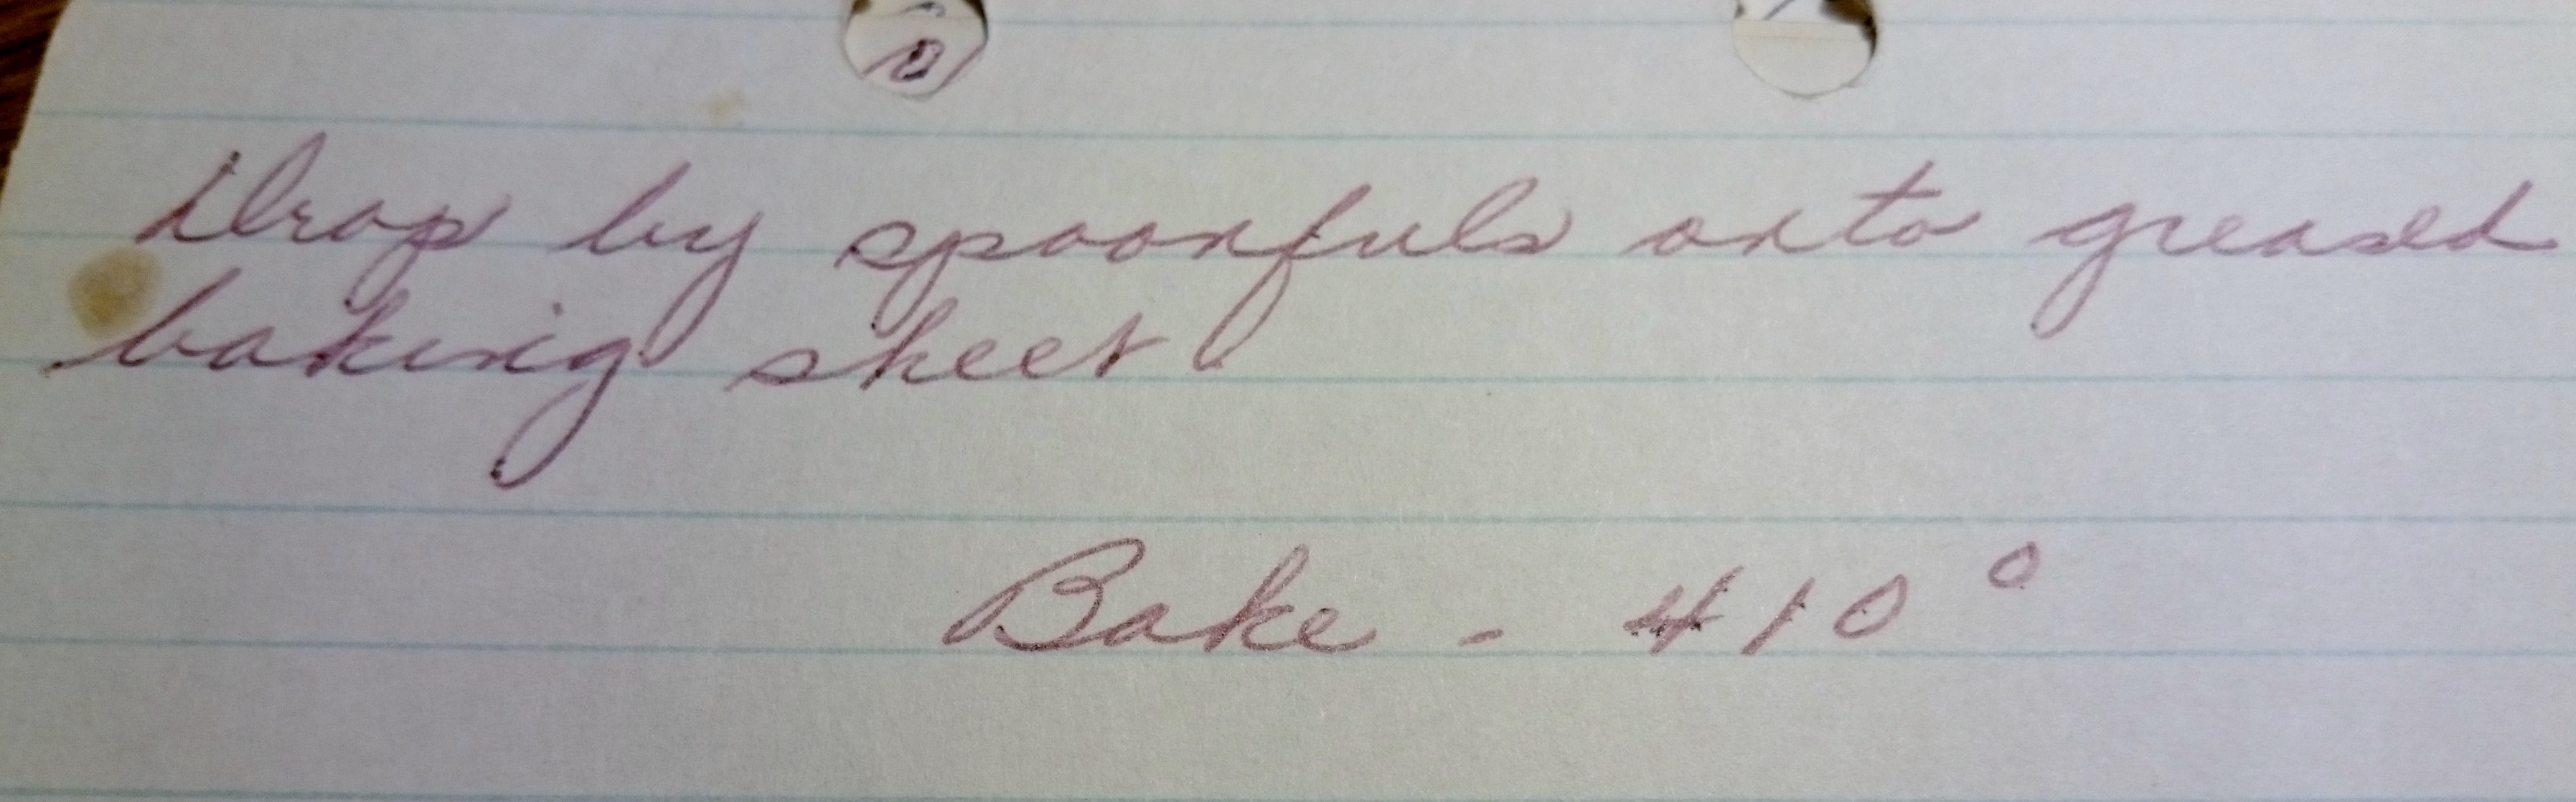 Drop by spoonfuls onto greased
baking sheet
Bake - 410°